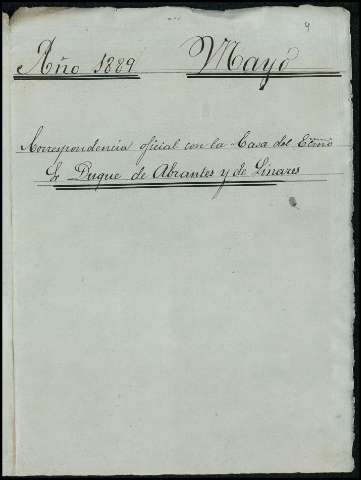 9
Año 1889 Mayo
Correspondencia oficial con la Casa del Excmo
Sr Duque de Abrantes y de Linares